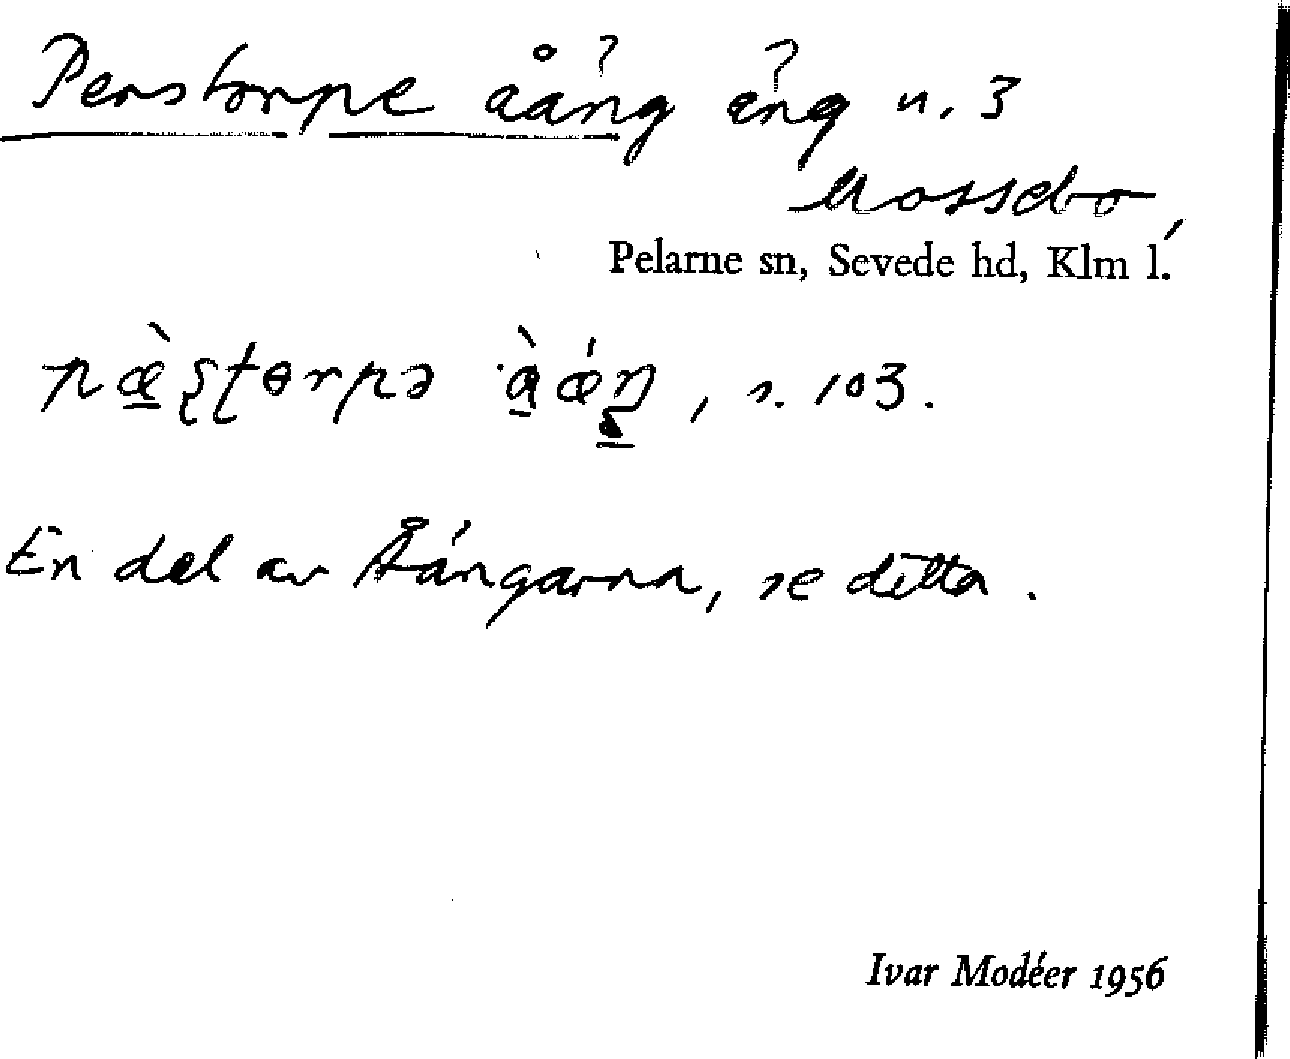 Perstorpe åäng äng n. 3
Mossebo,
Pelarne sn, Sevede hd, Klm l.
, s. 103.
En del av Åängarna, se detta.
Ivar Modéer 1956